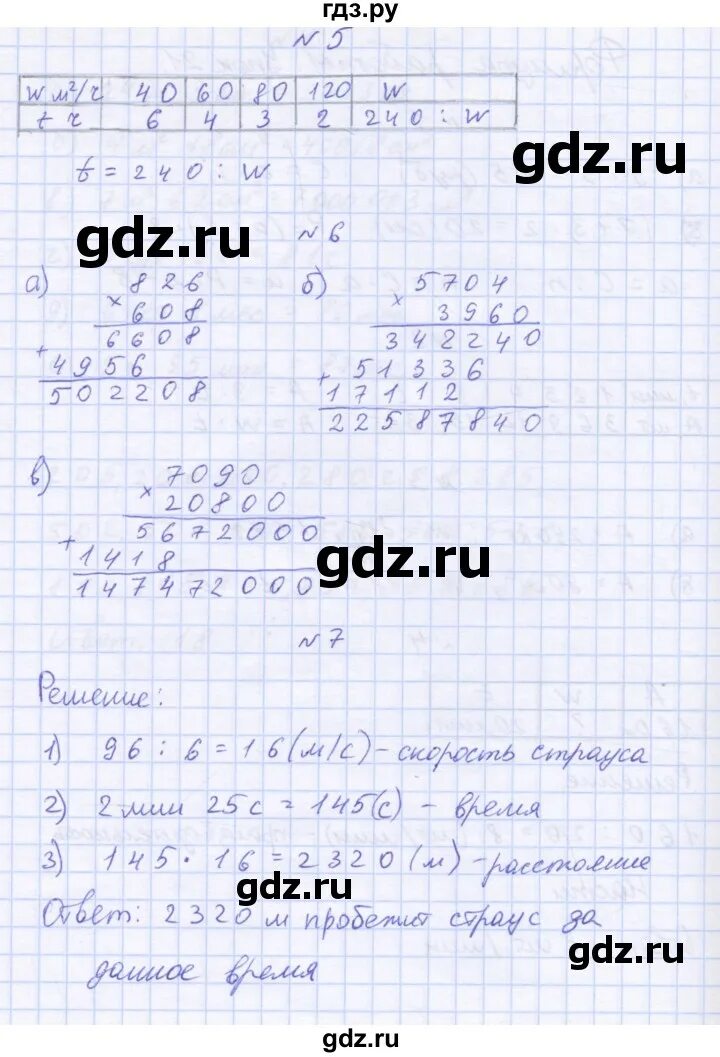 гдз.ру
N 5
w м²/ч 40 60 80 120 w
t ч 6 4 3 2 240 : w
t = 240 : w
gdz.ru
N 6
а) 826 б) 5704
× 608 × 3960
6608 342240
+ 4956 + 51336
502208 17112
22587840
gdz.ru
в) 7090
× 20800
5672000
+ 1418
147472000
gdz.ru
N 7
Решение:
1) 96 : 6 = 16 (м/с) - скорость страуса
2) 2 мин 25 с = 145 (с) - время
3) 145 · 16 = 2320 (м) - расстояние
gdz.ru
Ответ: 2320 м пробежит страус за
данное время
gdz.ru
gdz.ru